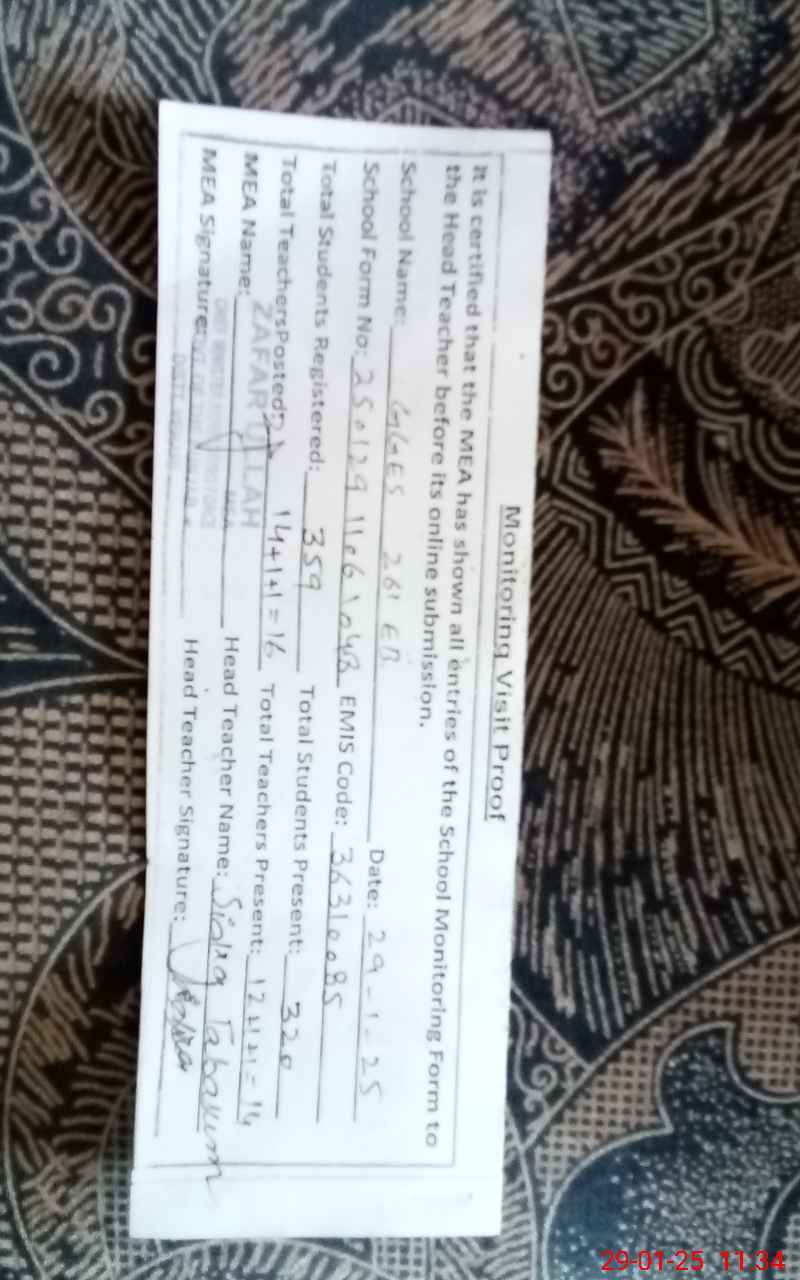 Monitoring Visit Proof
It is certified that the MEA has shown all entries of the School Monitoring Form to
the Head Teacher before its online submission.
School Name: GGES 261 EB Date: 29-1-25
School Form No: 250129 EMIS Code: 36310085
Total Students Registered: 359 Total Students Present: 320
Total TeachersPosted: 14+1+1=16 Total Teachers Present: 12+1+1=14
MEA Name: ZAFAR ULLAH Head Teacher Name: Tabasum
MEA Signature: Head Teacher Signature:
29-01-25 11:34